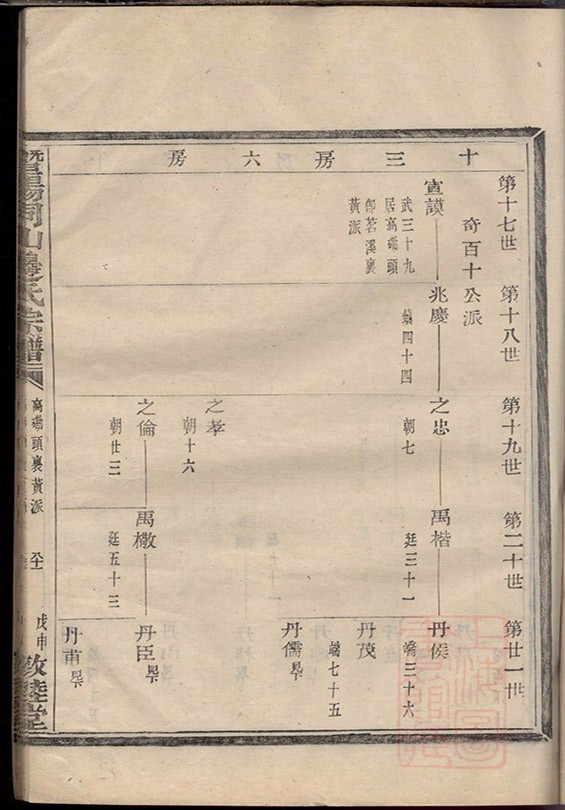 十三房六房
第十七世
第十八世
第十九世
第二十世
第廿一世
奇百十公派
宣謨
武三十九
居高礄頭
卽茗溪裏
黃派
兆慶
鎮四十四
之忠
朝七
禹楷
廷三十一
丹侯
嶠三十六
丹茂
嶠七十五
丹儒
之孝
朝十六
之倫
朝廿三
禹橄
廷五十三
丹臣
丹甫
暨陽同山邊氏宗譜
高礄頭裏黃派
戊申
敦睦堂